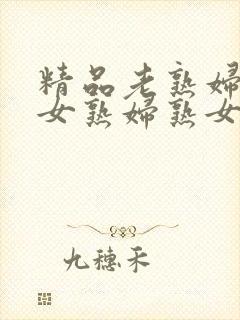 精品老熟婦
女熟婦熟女
九穗禾